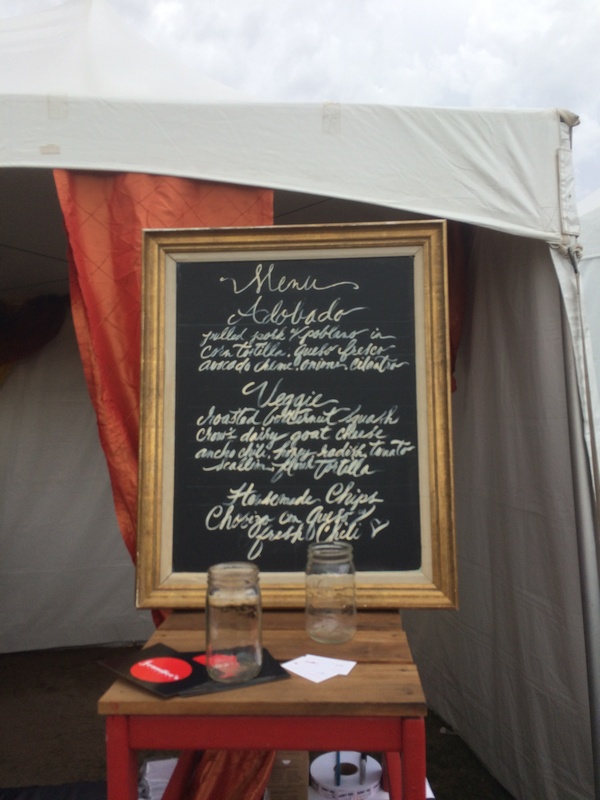 Menu
Adobado
pulled pork & poblano in
corn tortilla, queso fresco
avocado crema onions, cilantro
Veggie
roasted butternut squash
crow's dairy goat cheese
ancho chili, honey, radish, tomato
flour tortilla
Housemade Chips
Chorizo con Queso
fresh Chili